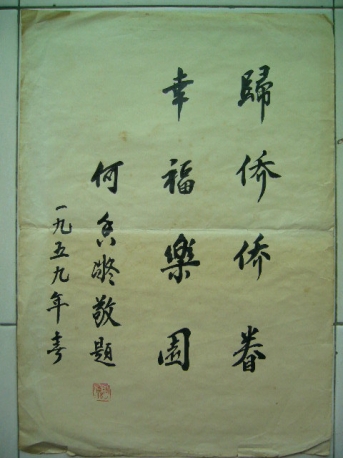 歸侨侨眷
幸福樂園
何香凝敬題
一九五九年